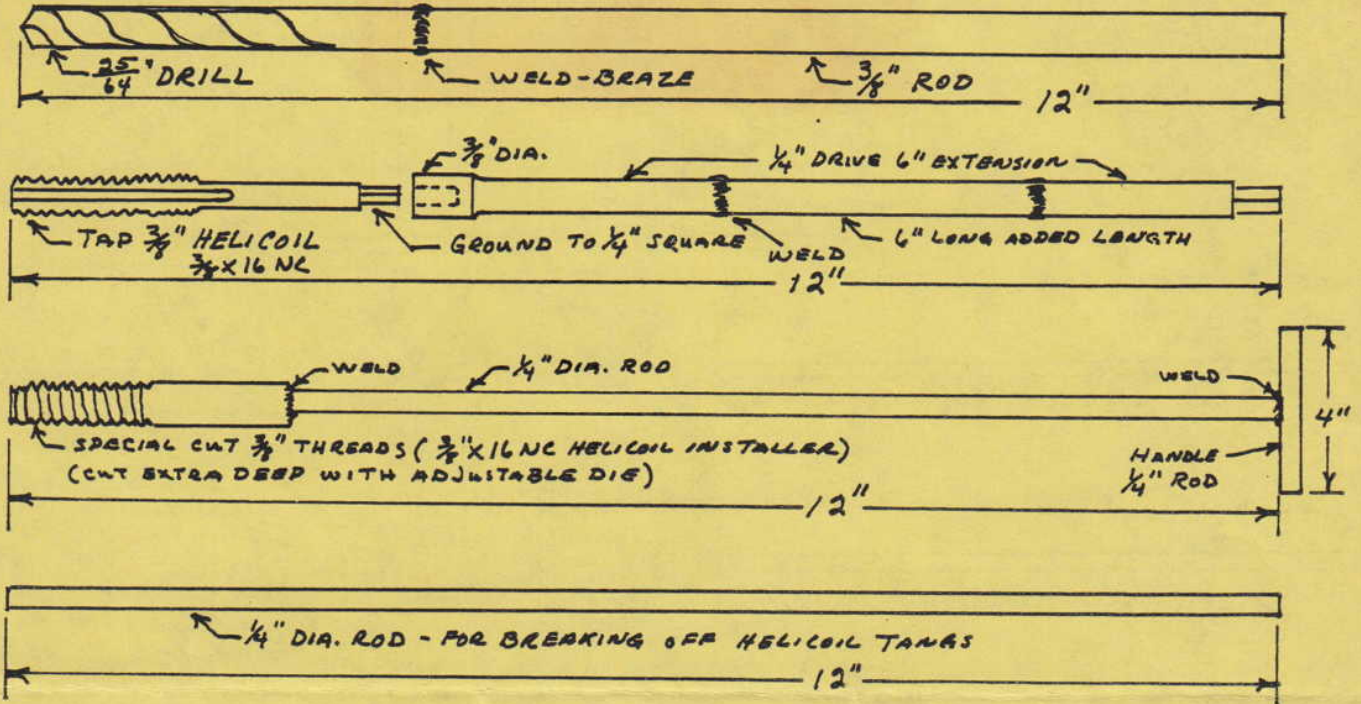 25/64" DRILL
WELD-BRAZE
3/8" ROD
12"
3/8" DIA.
1/4" DRIVE 6" EXTENSION
TAP 3/8" HELICOIL
3/8 X 16 NC
GROUND TO 1/4" SQUARE
WELD
6" LONG ADDED LENGTH
12"
WELD
1/4" DIA. ROD
WELD
4"
SPECIAL CUT 3/8" THREADS (3/8" X 16 NC HELICOIL INSTALLER)
(CUT EXTRA DEEP WITH ADJUSTABLE DIE)
HANDLE
1/4" ROD
12"
1/4" DIA. ROD - FOR BREAKING OFF HELICOIL TANGS
12"